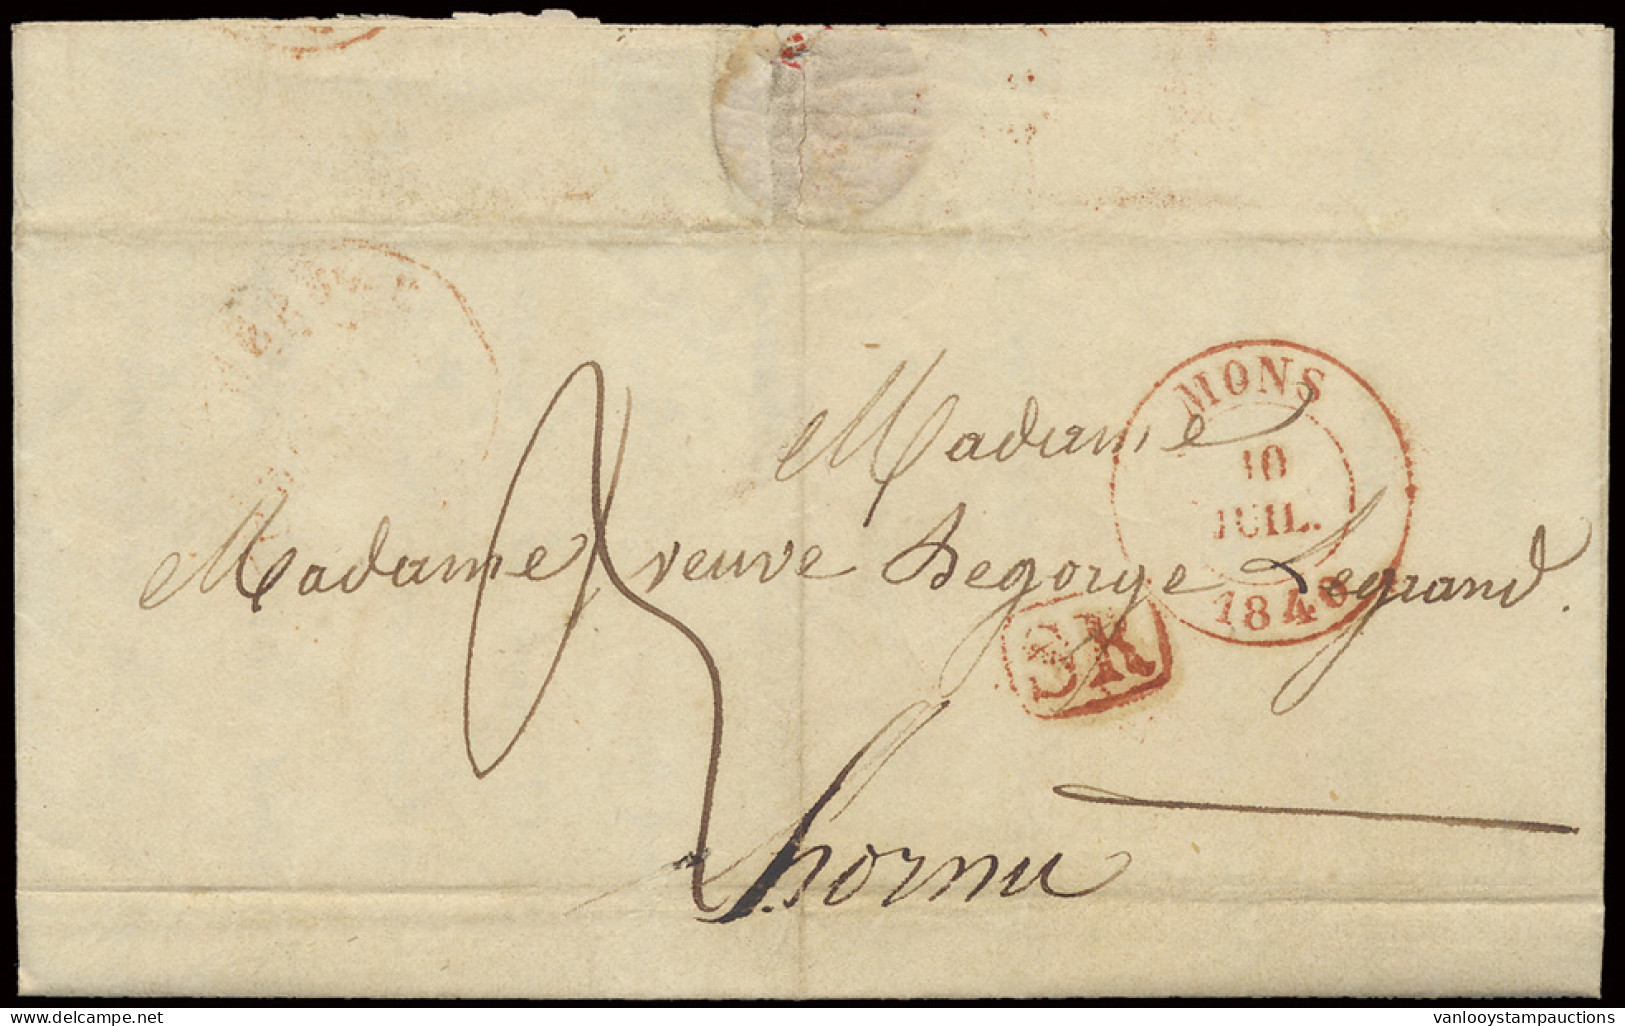 MONS
10
JUIL.
1840
Madame
Madame veuve Degorge Legrand.
SR
hornu
delcampe.net
vanlooystampauctions